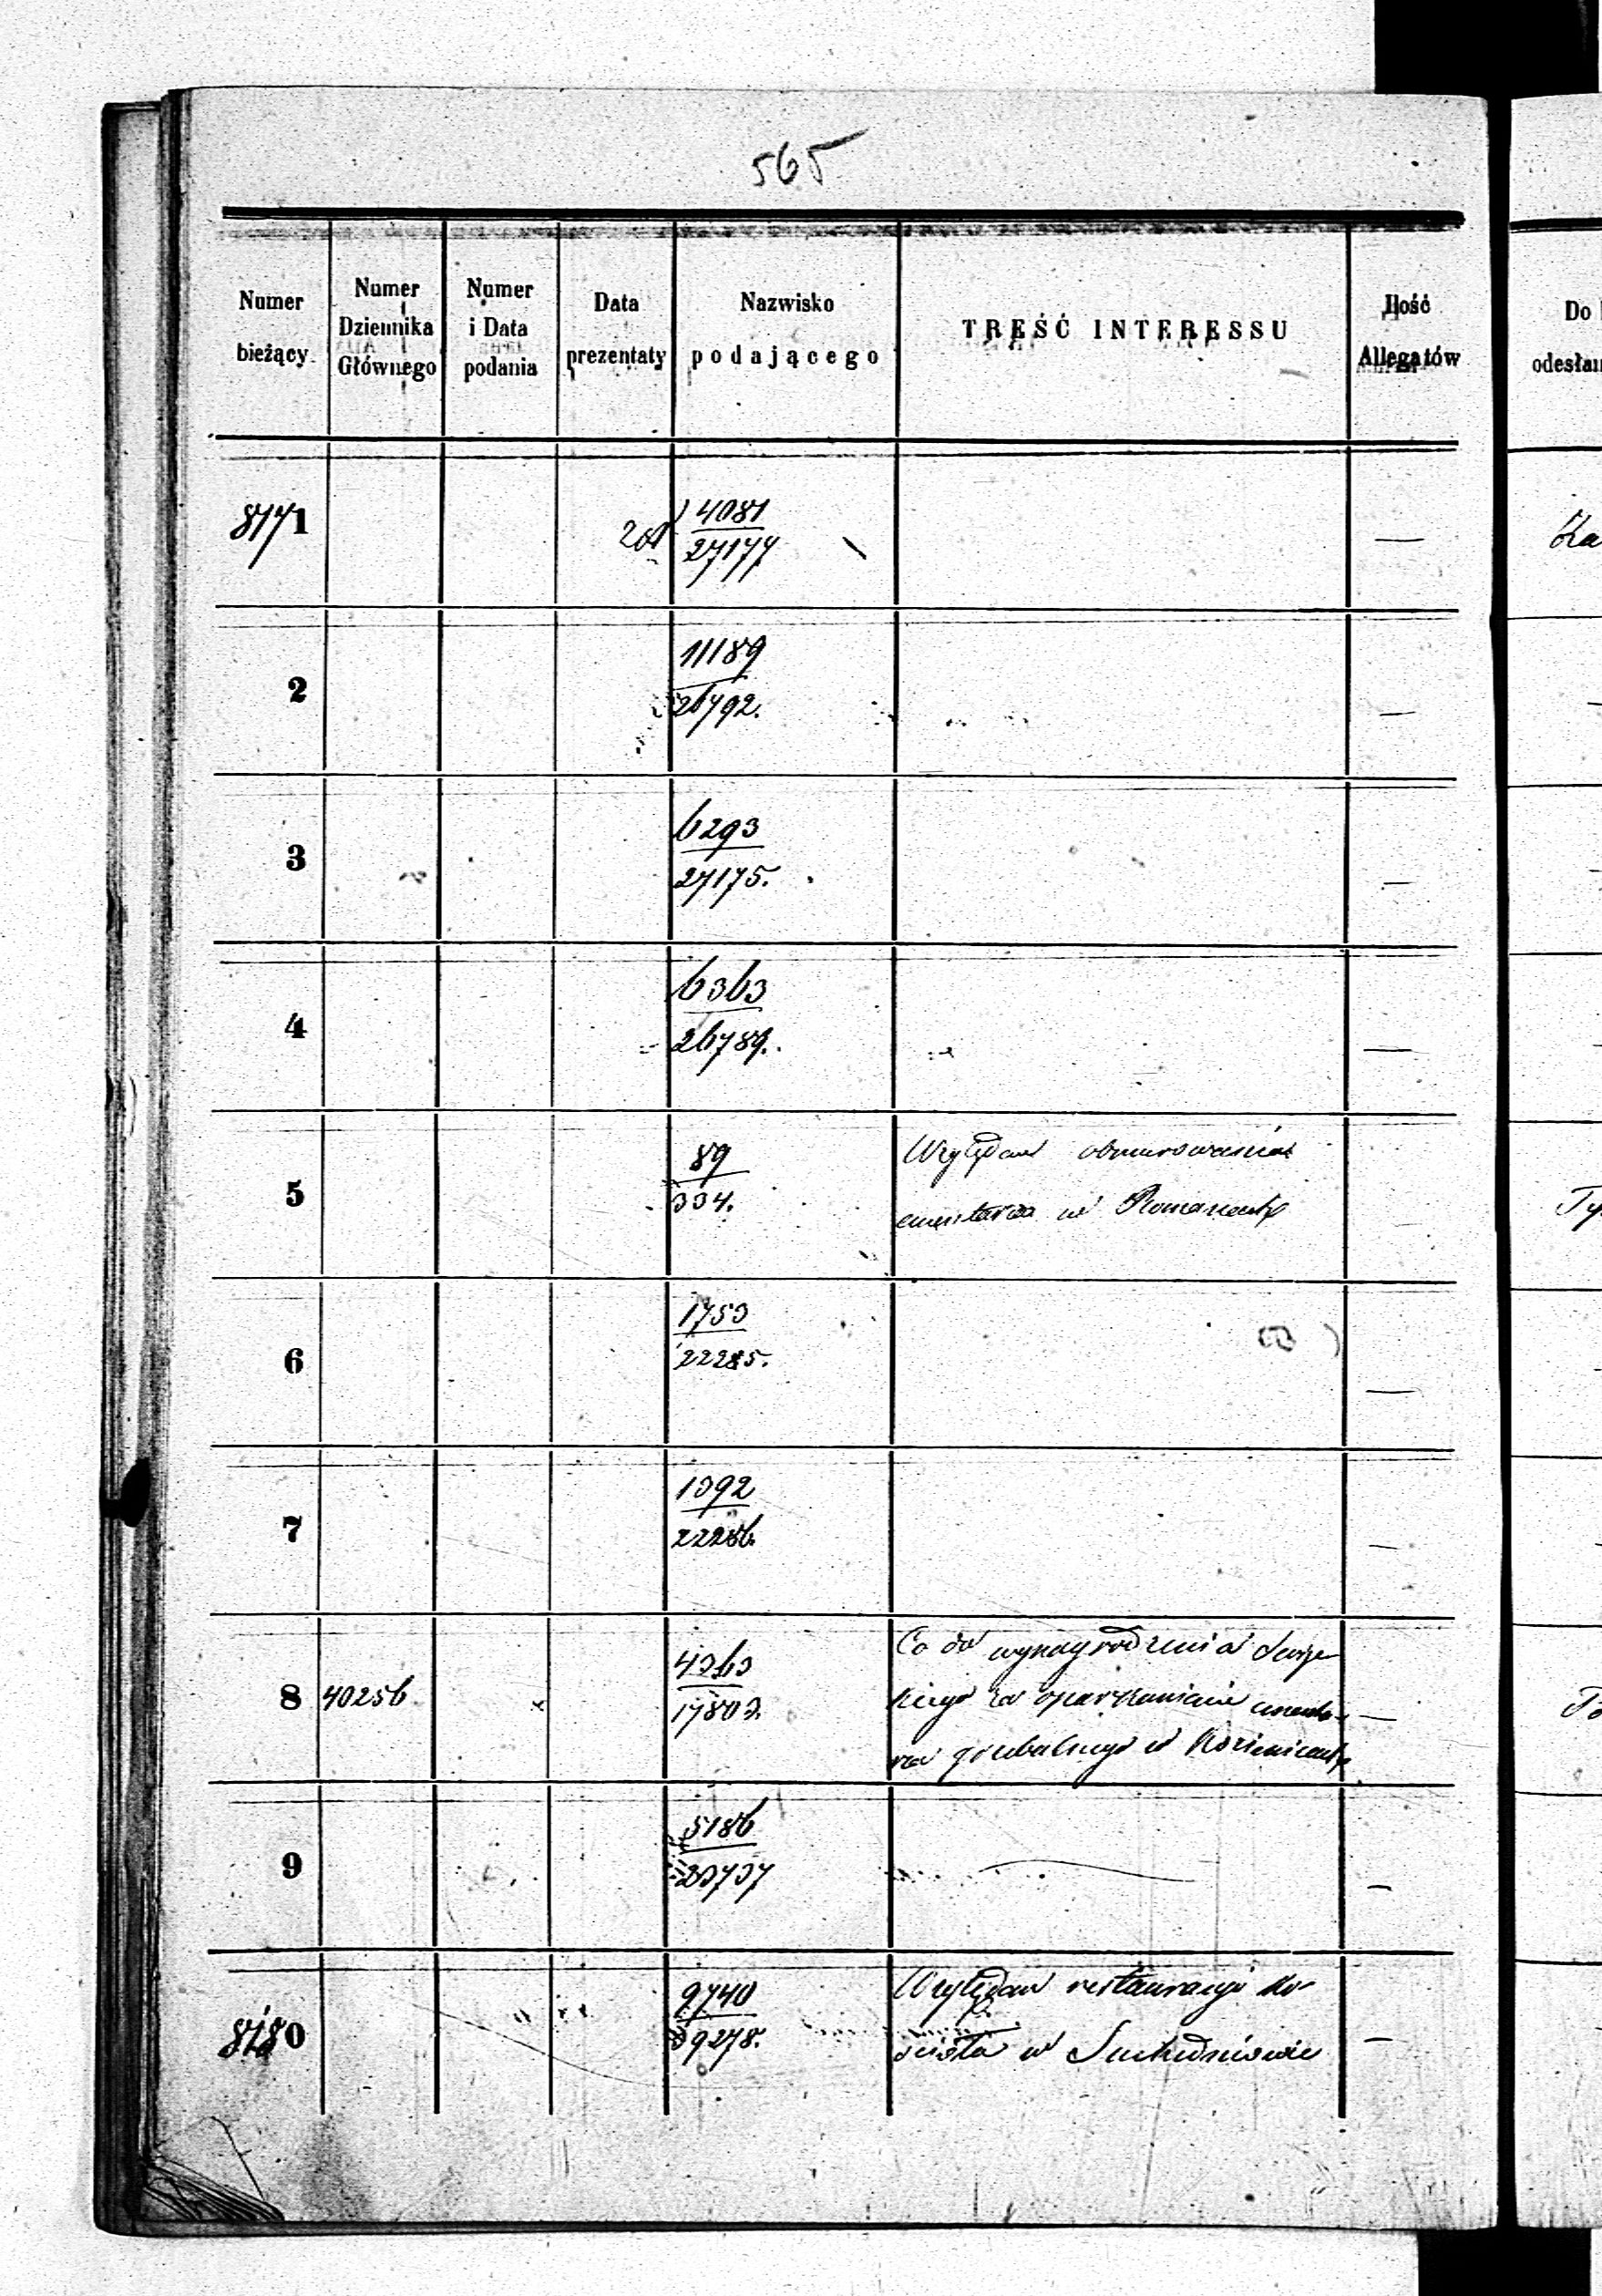 565
Numer bieżący
Numer Dziennika Głównego
Numer i Data podania
Data prezentaty
Nazwisko podającego
TREŚĆ INTERESSU
Ilość Allegatów
Do
odesłan
8171 4081
27177
2 11189
26792.
3 6293
27175.
4 6363
26789.
5 89
334.
Względem obmurowania
cmentarza w
6 1753
22285.
7 1392
22286.
8 40256 4363
17803.
Co do wynagrodzenia
kiego za oparkanienie cmenta-
rza grzebalnego w Kozienicach
9 5186
23737
8180 9740
39278.
Względem restauracyi ko-
ścioła w Suchedniowie